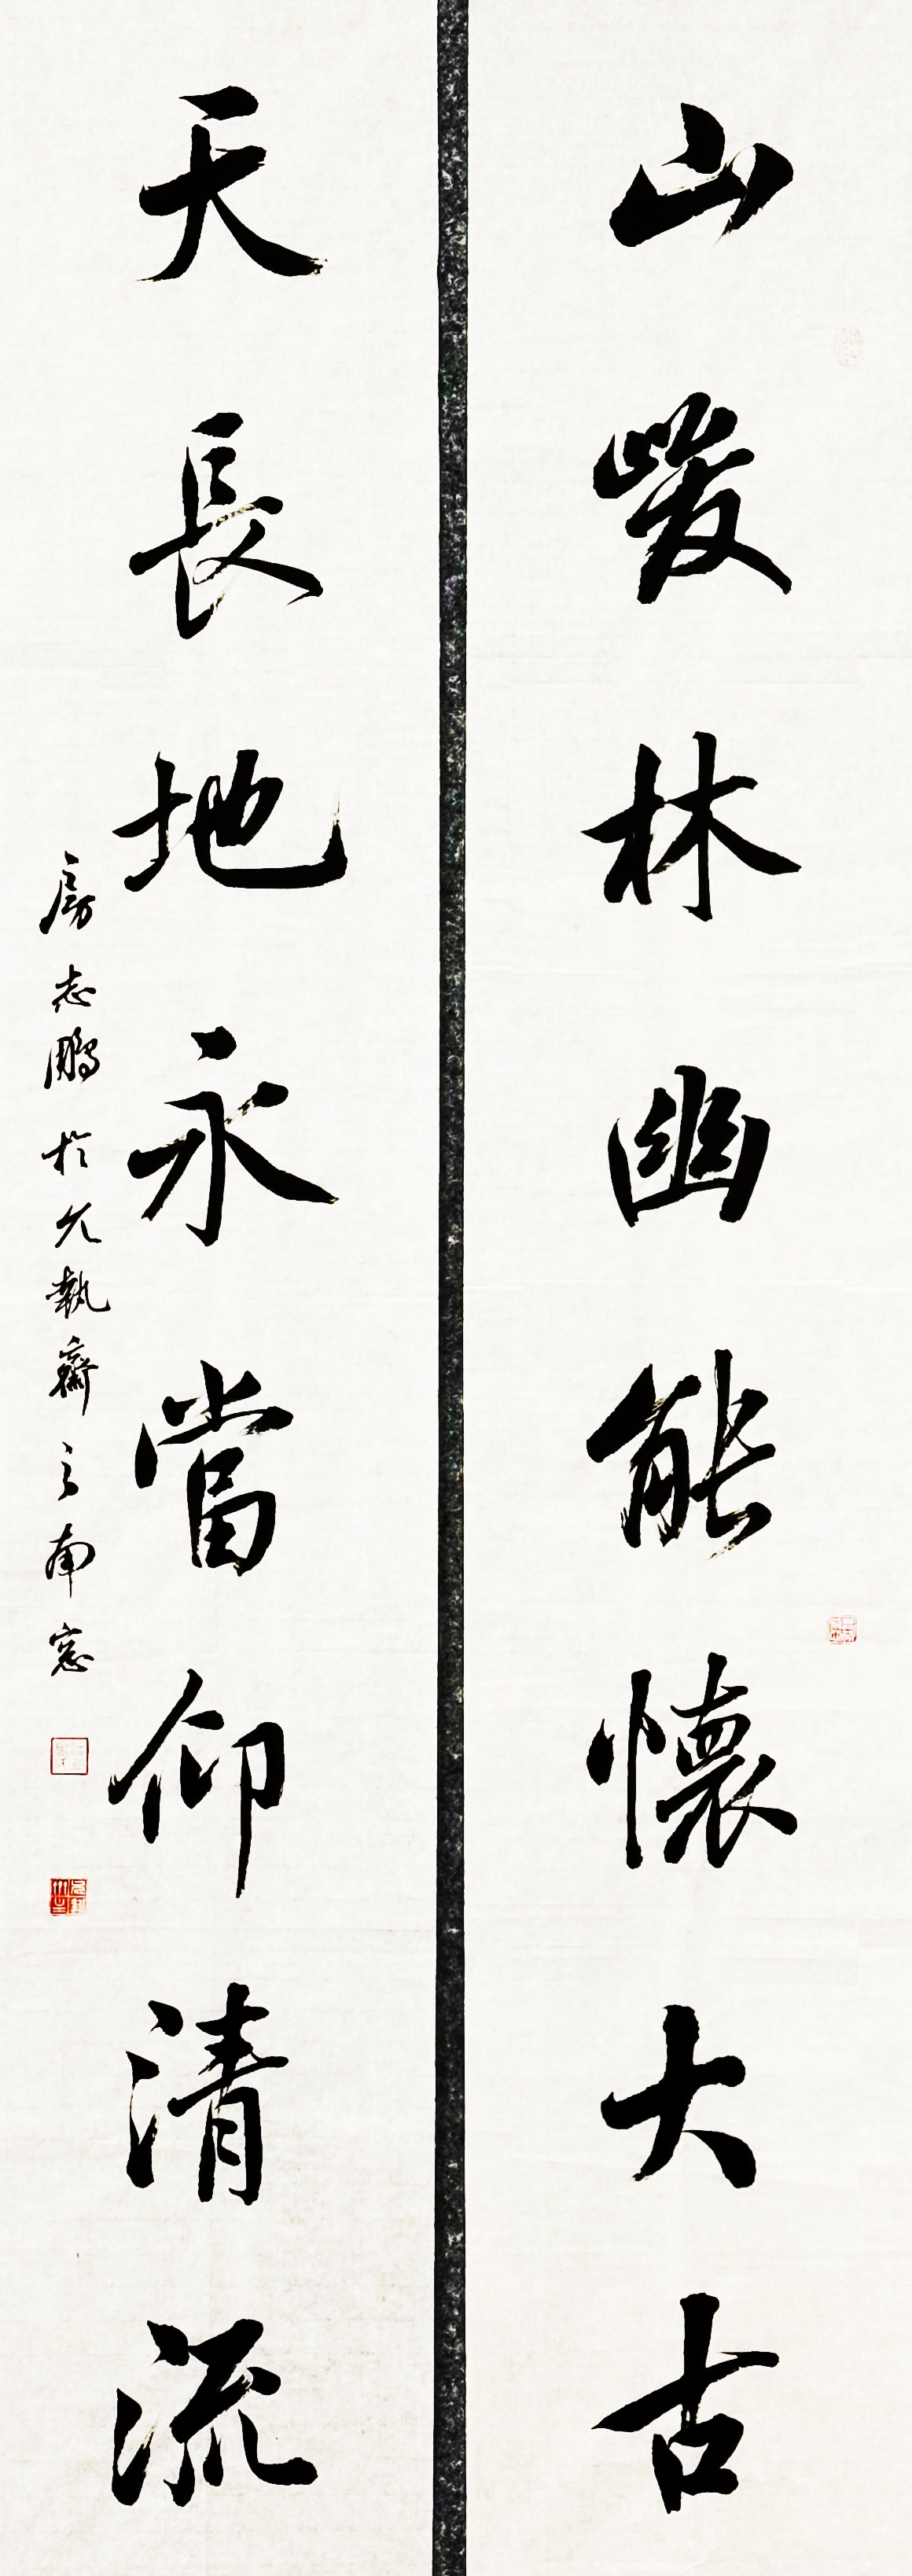 山峻林幽能懷大古
天長地永當仰清流
房志鵬於允執齋之南窓